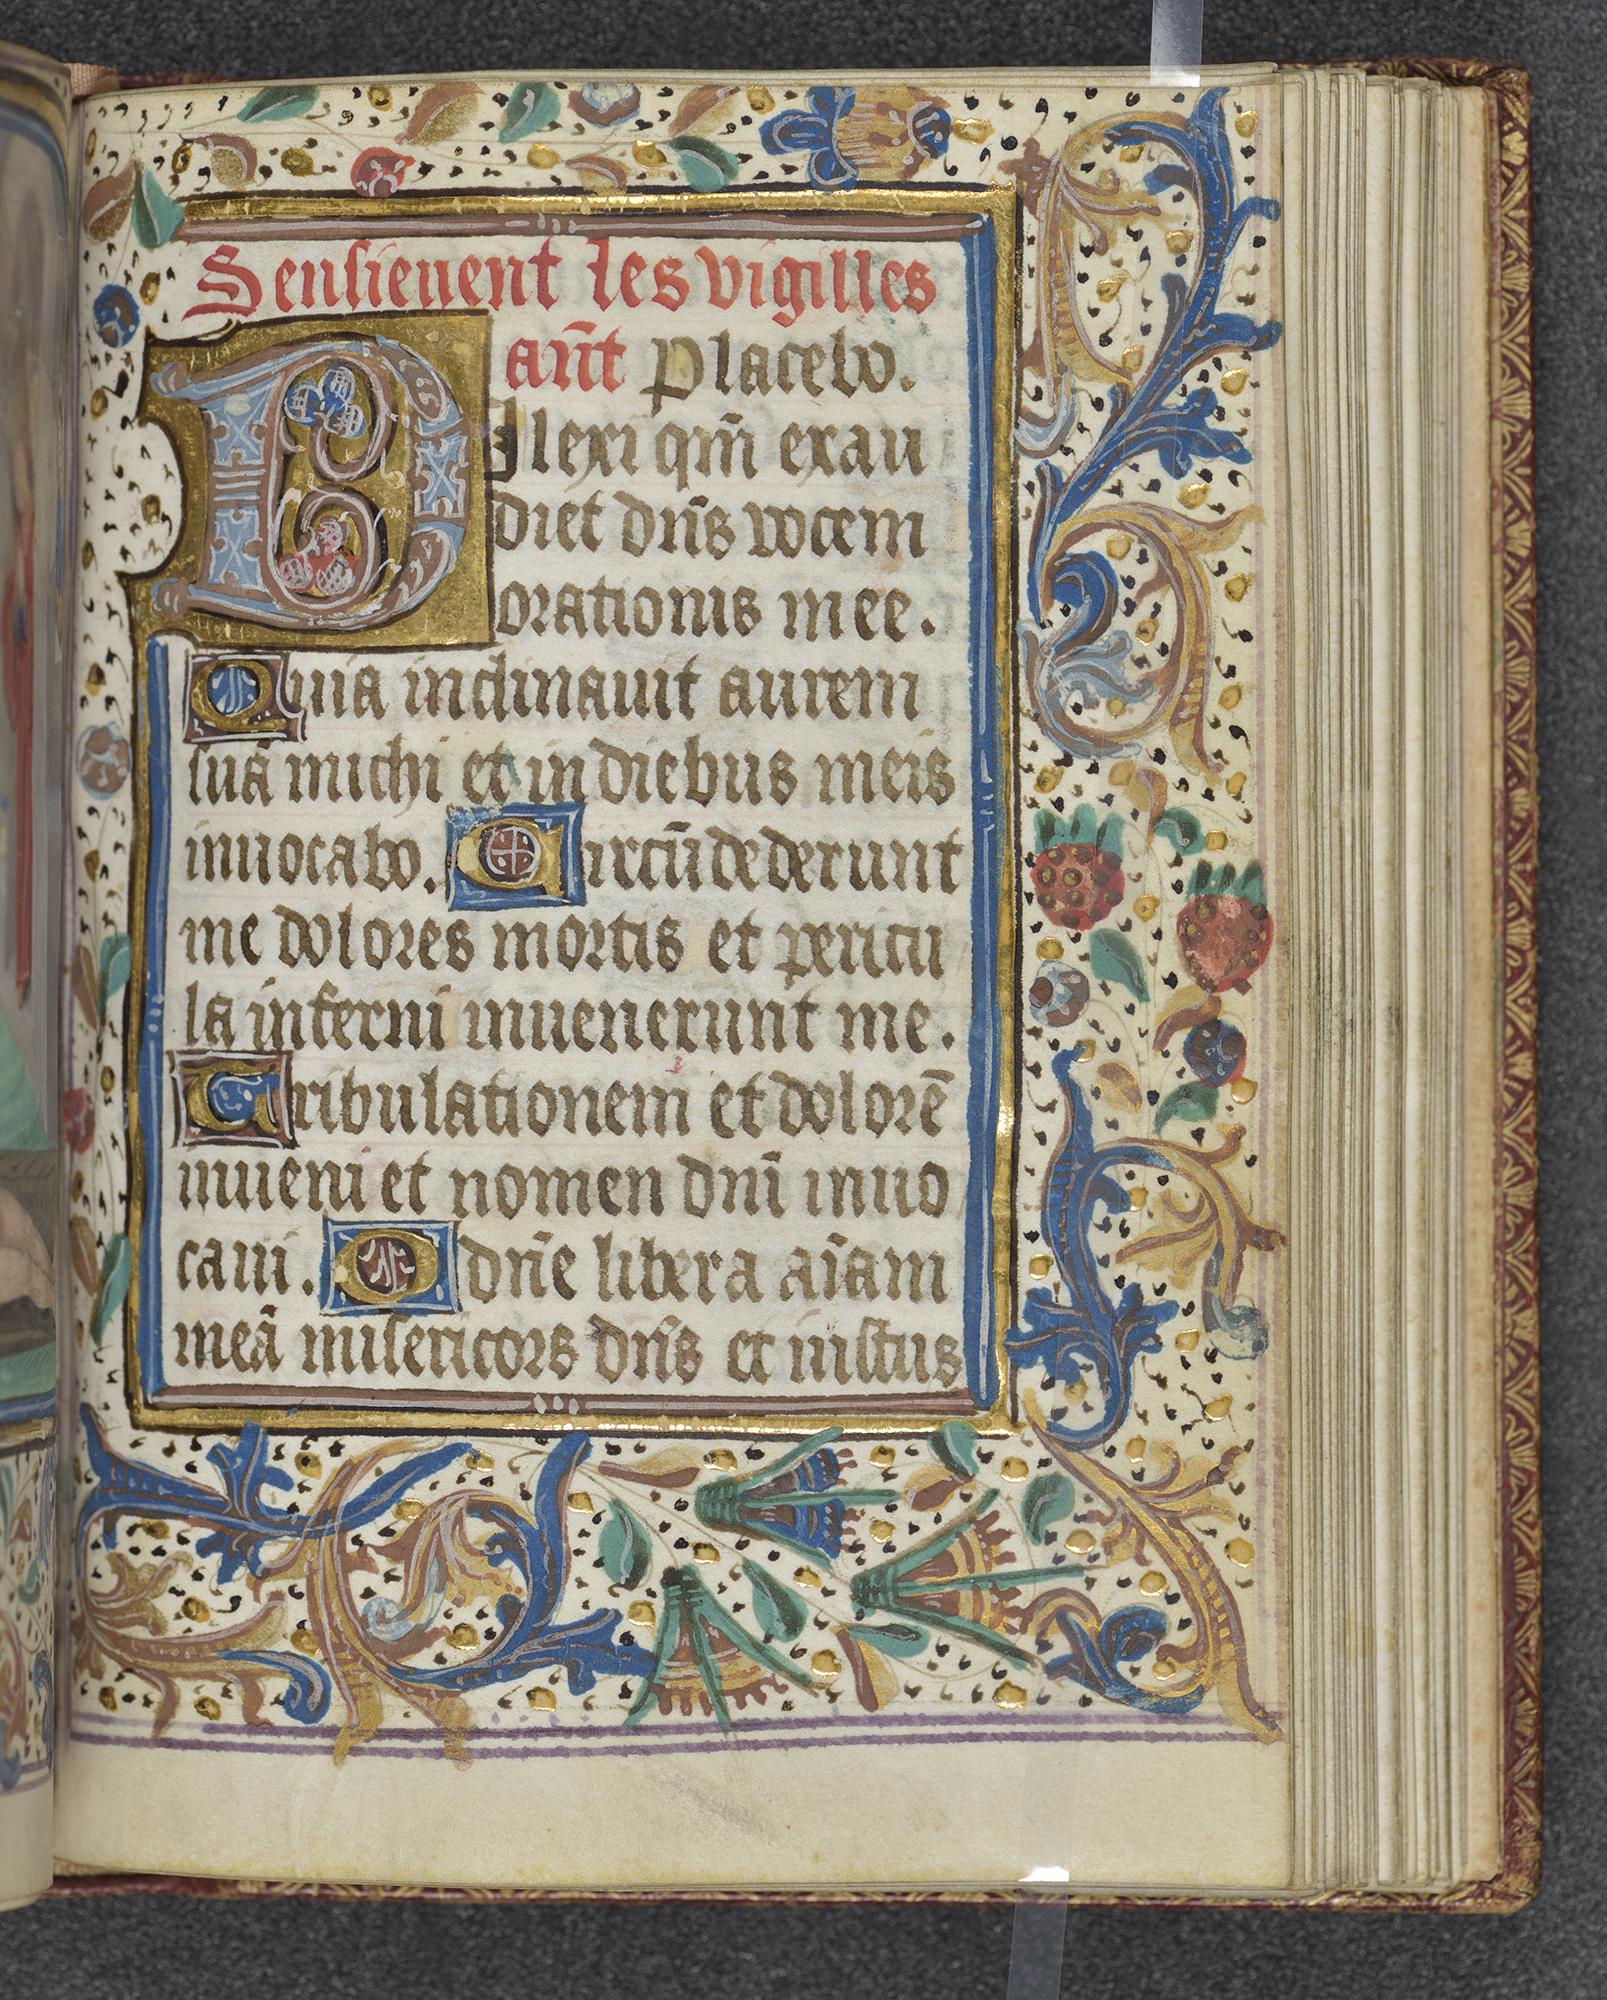 Sensieuent les vigilles
an̄t placebo.
Dilexi qm̄ exau
diet dn̄s vocem
orationis mee.
Quia inclinauit aurem
suā michi et in diebus meis
inuocabo. Circūdederunt
me dolores mortis et pericu
la inferni inuenerunt me.
Tribulationem et dolorē
inueni et nomen dn̄i inuo
caui. O dn̄e libera aīam
meā misericors dn̄s et iustus